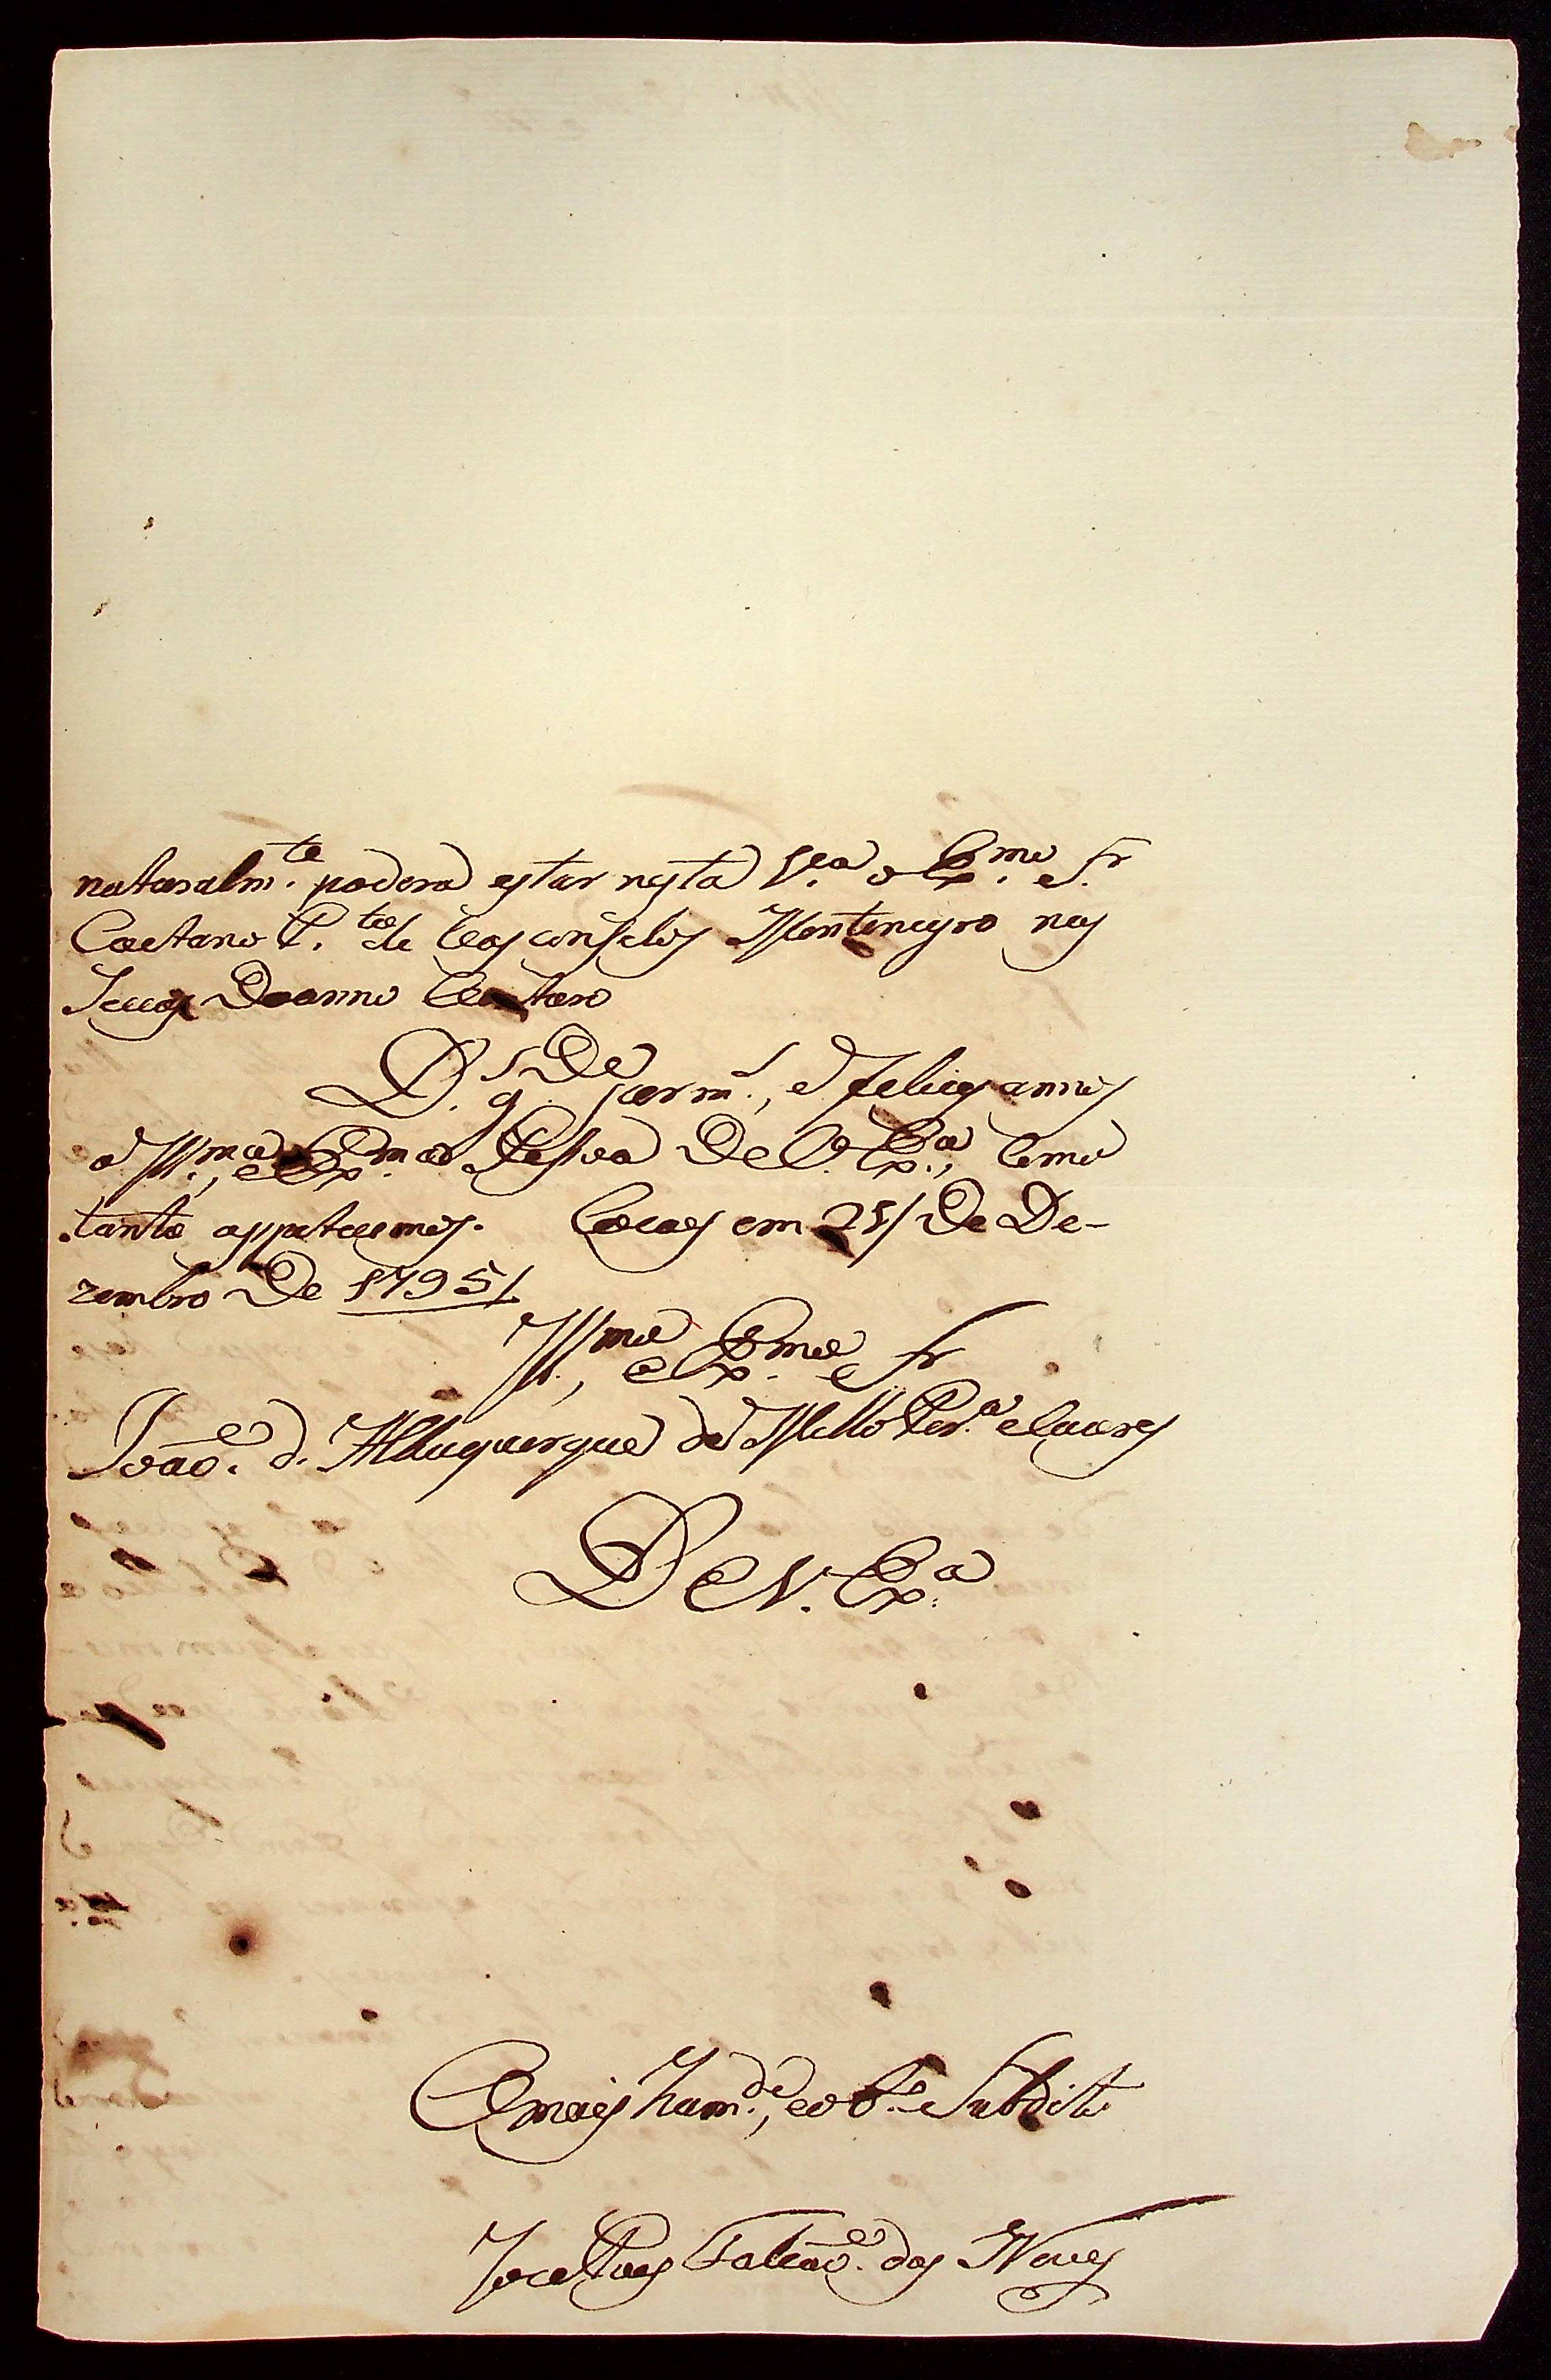 naturalm.te poderá estar nesta V.a o Ex.mo Sr.
Caetano P.to de Vasconselos Montenegro nos
Do anno
D.s g.de por m.s, e Felices annos
a Ill.ma, e Ex.ma Pesoa De V. Ex.a, Como
tanto appetecemos. em 21/ De De-
zembro De 1795/
Ill.mo, e Ex.mo Sr
João. d. Albuquerque de Mello Per.a e Caceres
De V. Ex.a
O mais hum.de, e ob.e Subdito
Joze Paes Falcão. das Neves